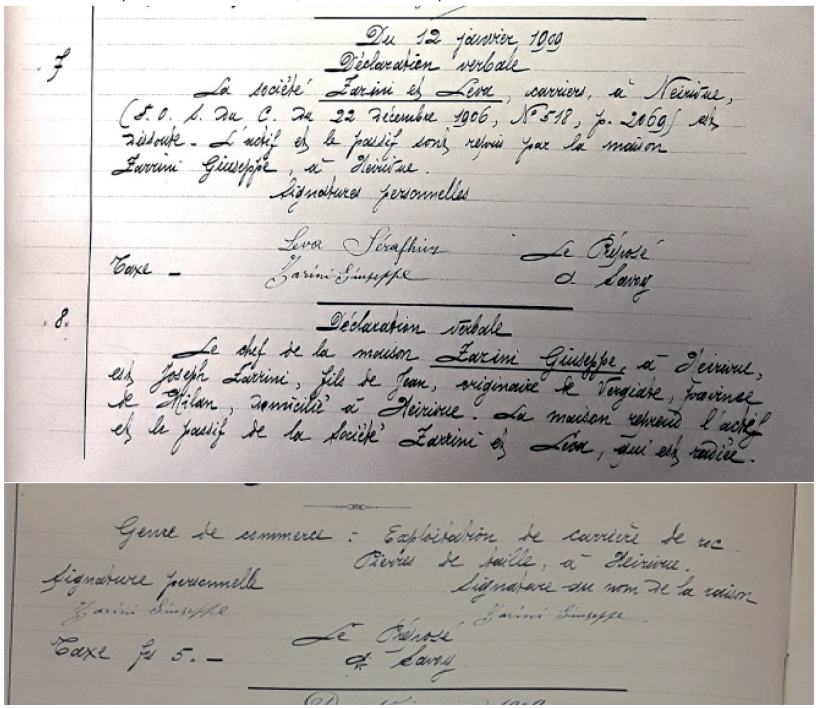 Du 12 janvier 1909
7 Déclaration verbale
La société Zarini et Léva, carriers, à Neirivue,
(F. o. s. du C. du 22 décembre 1906, N° 518, p. 2069) est
dissoute - L'actif et le passif sont repris par la maison
Zarrini Giuseppe, à Neirivue.
Signatures personnelles
Leva Séraphin Le Préposé
Taxe - Zarini Giuseppe d Savoy
8. Déclaration verbale
Le chef de la maison Zarini Giuseppe, à Neirivue,
est Joseph Zarrini, fils de Jean, originaire de Vergiate, province
de Milan, domicilié à Neirivue. La maison reprend l'actif
et le passif de la Société Zarrini et Léva, qui est radiée.
Genre de commerce : Exploitation de carrière de roc
Pierres de taille, à Neirivue.
Signature personnelle Signature du nom de la raison
Zarini Giuseppe Zarini Giuseppe.
Le Préposé
Taxe fs 5. - d Savoy